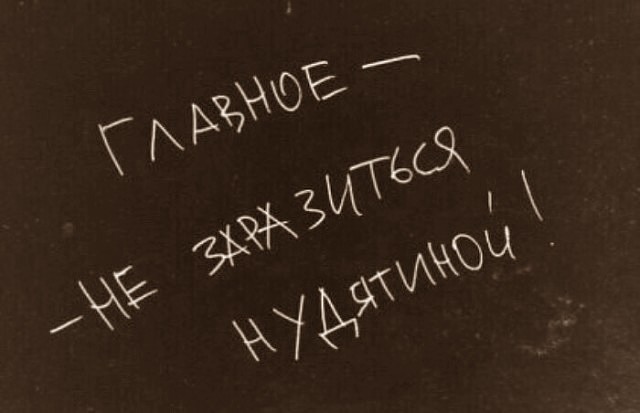 ГЛАВНОЕ —
— НЕ ЗАРАЗИТЬСЯ
НУДЯТИНОЙ!